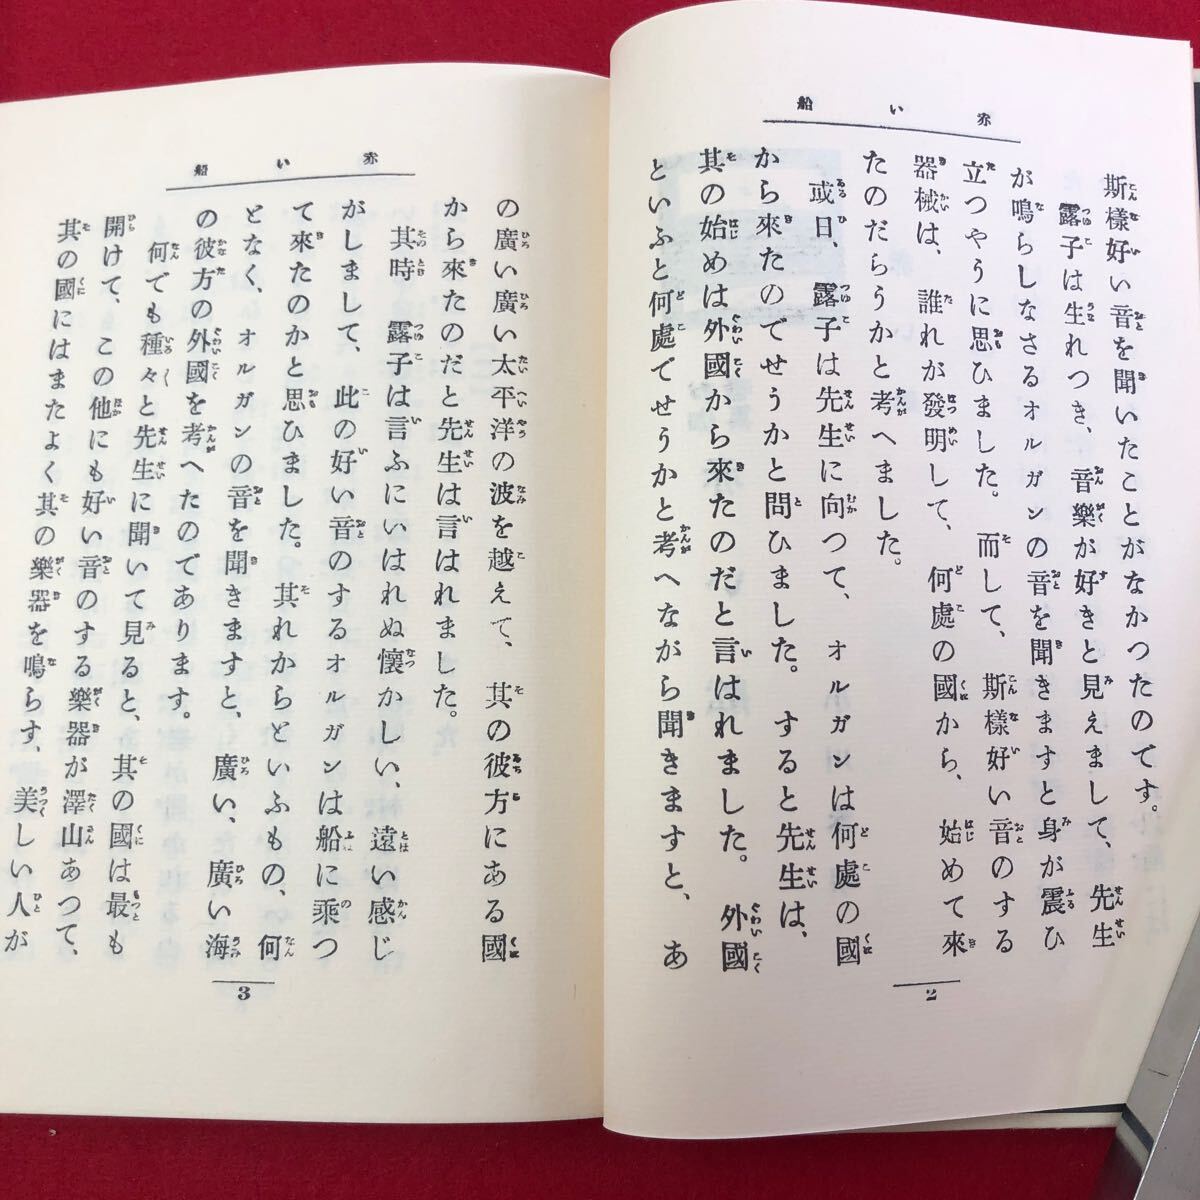 赤い船
斯樣好い音を聞いたことがなかつたのです。
露子は生れつき、音樂が好きと見えまして、先生
が鳴らしなさるオルガンの音を聞きますと身が震ひ
立つやうに思ひました。而して、斯樣好い音のする
器械は、誰れが發明して、何處の國から、始めて來
たのだらうかと考へました。
或日、露子は先生に向つて、オルガンは何處の國
から來たのでせうかと問ひました。すると先生は、
其の始めは外國から來たのだと言はれました。外國
といふと何處でせうかと考へながら聞きますと、あ
2
赤い船
の廣い廣い太平洋の波を越えて、其の彼方にある國
から來たのだと先生は言はれました。
其時露子は言ふにいはれぬ懷かしい、遠い感じ
がしまして、此の好い音のするオルガンは船に乘つ
て來たのかと思ひました。其れからといふもの、何
となく、オルガンの音を聞きますと、廣い、廣い海
の彼方の外國を考へたのであります。
何でも種々と先生に聞いて見ると、其の國は最も
開けて、この他にも好い音のする樂器が澤山あつて、
其の國にはまたよく其の樂器を鳴らす、美しい人が
3